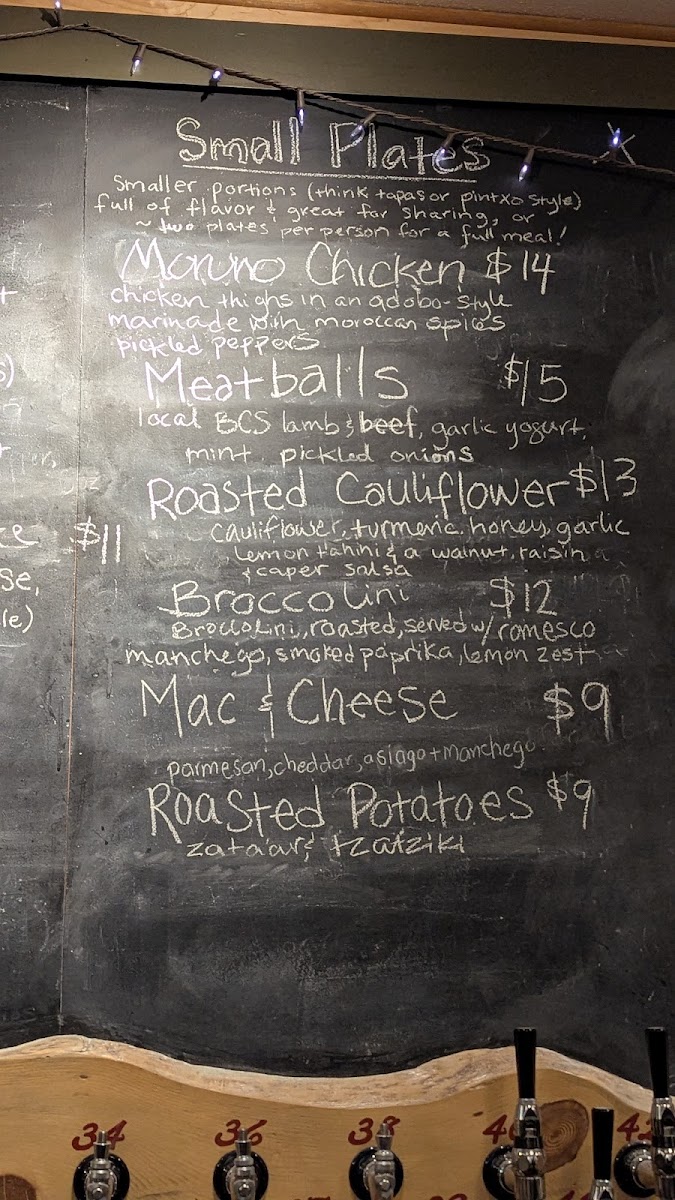 Small Plates
Smaller portions (think tapas or pintxo style)
full of flavor & great for sharing, or
~ two plates per person for a full meal!
Moruno Chicken $14
chicken thighs in an adobo-style
marinade with moroccan spices
pickled peppers
Meatballs $15
local BCS lamb & beef, garlic yogurt,
mint, pickled onions
Roasted Cauliflower $13
cauliflower, turmeric, honey, garlic
lemon tahini & a walnut, raisin
& caper salsa
Broccolini $12
Broccolini, roasted, served w/ romesco
manchego, smoked paprika, lemon zest
Mac & Cheese $9
parmesan, cheddar, asiago + manchego
Roasted Potatoes $9
zata'ar & tzatziki
$11
se,
le)
34 36 38 40 42